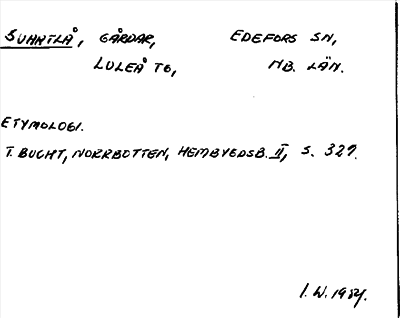 SVARTLÅ, GÅRDAR, EDEFORS SN,
LULEÅ TG, NB. LÄN.
ETYMOLOGI.
T. BUCHT, NORRBOTTEN, HEMBYGDSB. II, S. 329.
I. W. 1984.